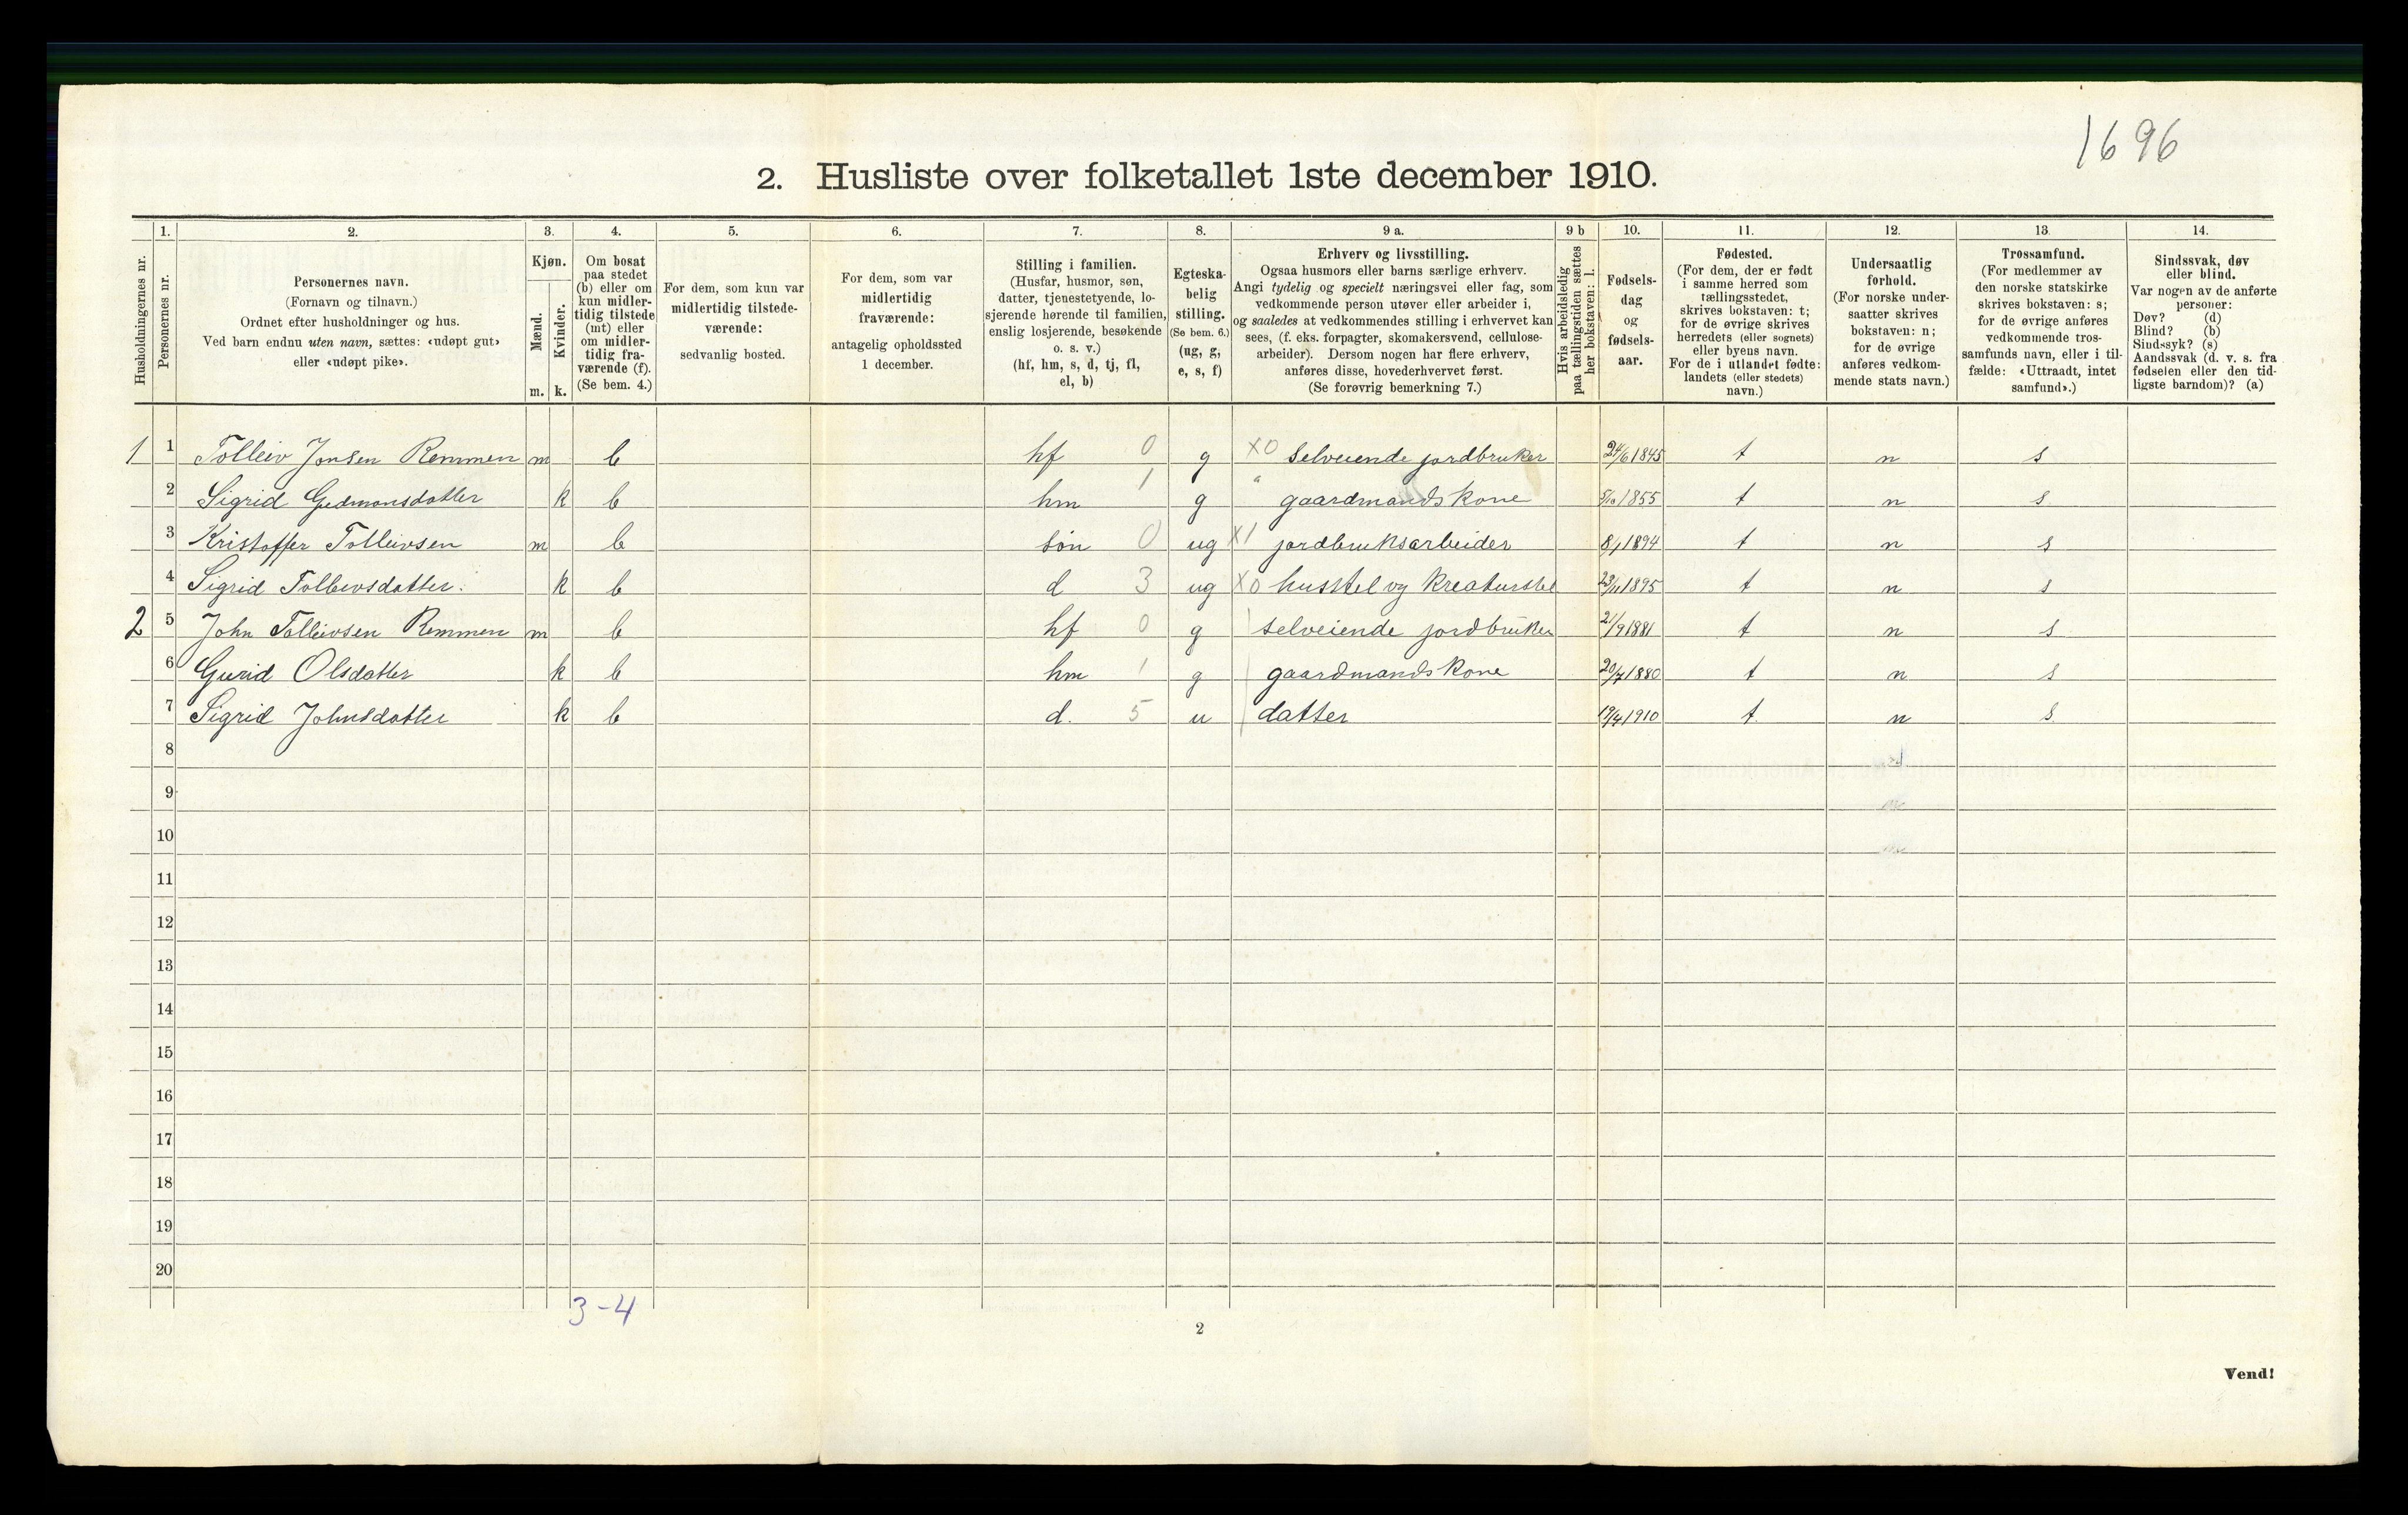 1696
2. Husliste over folketallet 1ste december 1910.
Husholdningernes nr.
1.
Personernes nr.
2.
Personernes navn.
(Fornavn og tilnavn.)
Ordnet efter husholdninger og hus.
Ved barn endnu uten navn, sættes: «udøpt gut»
eller «udøpt pike».
3.
Kjøn.
Mænd.
Kvinder.
m. k.
4.
Om bosat
paa stedet
(b) eller om
kun midler-
tidig tilstede
(mt) eller
om midler-
tidig fra-
værende (f).
(Se bem. 4.)
5.
For dem, som kun var
midlertidig tilstede-
værende:
sedvanlig bosted.
6.
For dem, som var
midlertidig
fraværende:
antagelig opholdssted
1 december.
7.
Stilling i familien.
(Husfar, husmor, søn,
datter, tjenestetyende, lo-
sjerende hørende til familien,
enslig losjerende, besøkende
o. s. v.)
(hf, hm, s, d, tj, fl,
el, b)
8.
Egteska-
belig
stilling.
(Se bem. 6.)
(ug, g,
e, s, f)
9 a.
Erhverv og livsstilling.
Ogsaa husmors eller barns særlige erhverv.
Angi tydelig og specielt næringsvei eller fag, som
vedkommende person utøver eller arbeider i,
og saaledes at vedkommendes stilling i erhvervet kan
sees, (f. eks. forpagter, skomakersvend, cellulose-
arbeider). Dersom nogen har flere erhverv,
anføres disse, hovederhvervet først.
(Se forøvrig bemerkning 7.)
9 b
Hvis arbeidsledig
paa tællingstiden sættes
her bokstaven: l.
10.
Fødsels-
dag
og
fødsels-
aar.
11.
Fødested.
(For dem, der er født
i samme herred som
tællingsstedet,
skrives bokstaven: t;
for de øvrige skrives
herredets (eller sognets)
eller byens navn.
For de i utlandet fødte:
landets (eller stedets)
navn.)
12.
Undersaatlig
forhold.
(For norske under-
saatter skrives
bokstaven: n;
for de øvrige
anføres vedkom-
mende stats navn.)
13.
Trossamfund.
(For medlemmer av
den norske statskirke
skrives bokstaven: s;
for de øvrige anføres
vedkommende tros-
samfunds navn, eller i til-
fælde: «Uttraadt, intet
samfund».)
14.
Sindssvak, døv
eller blind.
Var nogen av de anførte
personer:
Døv? (d)
Blind? (b)
Sindssyk? (s)
Aandssvak (d. v. s. fra
fødselen eller den tid-
ligste barndom)? (a)
1 1 Tolleiv Jonsen Remmen m b hf 0 g X0 Selveiende jordbruker 24/6 1845 t n s
2 Sigrid Gudmonsdatter k b hm 1 g " gaardmandskone 5/10 1855 t n s
3 Kristoffer Tolleivsen m b søn 0 ug X1 jordbruksarbeider 8/1 1894 t n s
4 Sigrid Tolleivsdatter. k b d 3 ug X0 husstel og kreaturstel 23/11 1895 t n s
2 5 John Tolleivsen Remmen m b hf 0 g selveiende jordbruker 21/9 1881 t n s
6 Gurid Olsdatter k b hm 1 g gaardmandskone 20/7 1880 t n s
7 Sigrid Johnsdatter k b d. 5 u datter 19/4 1910 t n s
8
9
10
11
12
13
14
15
16
17
18
19
20
3-4
2
Vend!